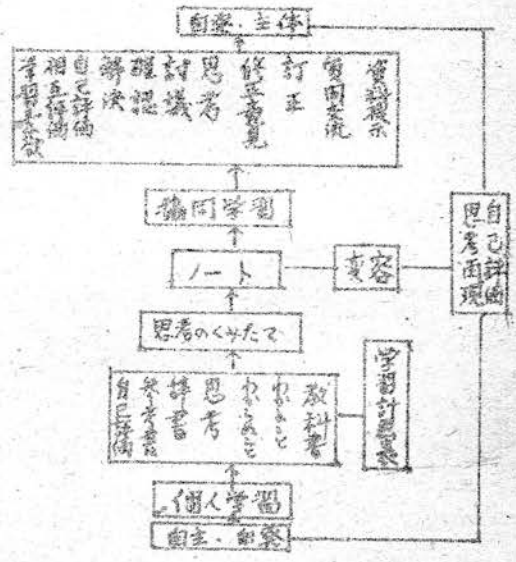 自発・主体
資料提示
質問交流
訂正
修正意見
思考
討議
確認
解決
自己評価
相互評価
学習意欲
協同学習
ノート
変容
自己評価
思考面現
思考のくみたて
教科書
わかること
思考
辞書
参考書
自己評価
学習計画表
個人学習
自主・自発